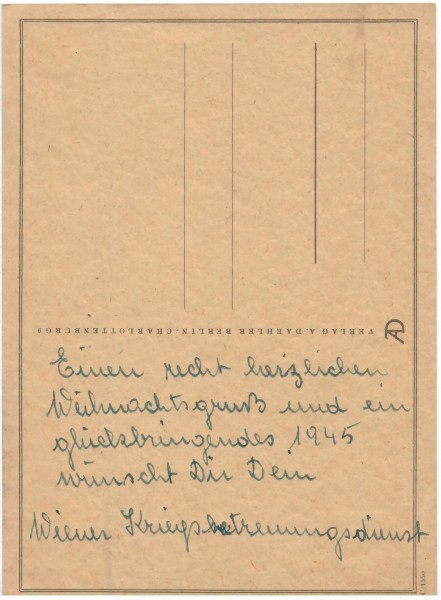 VERLAG A. DAEHLER BERLIN-CHARLOTTENBURG 9
AD
Einen recht herzlichen
Weihnachtsgruß und ein
glückbringendes 1945
wünscht Dir Dein
Wiener Kriegsbetreuungsdienst